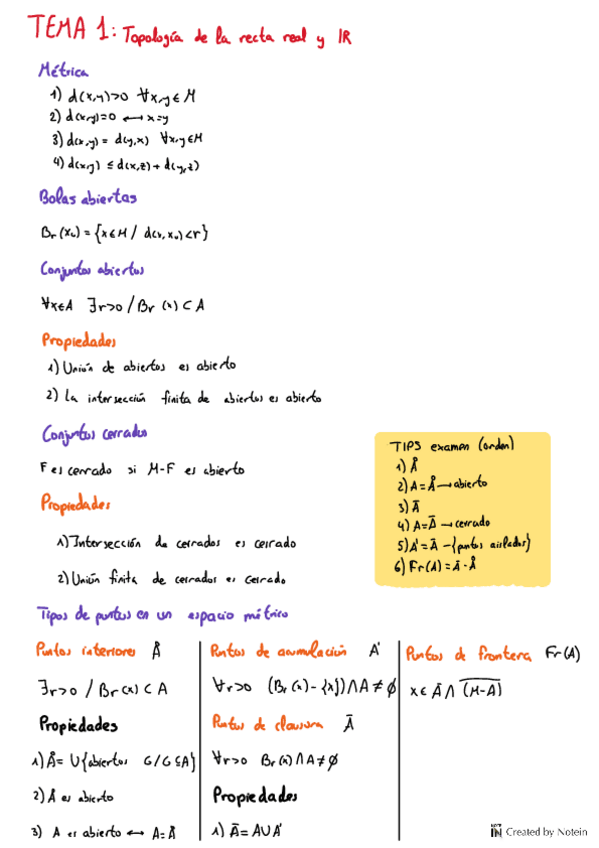 TEMA 1: Topología de la recta real y IR
Métrica
1) d(x,y)>0 ∀x,y∈M
2) d(x,y)=0 ⟷ x=y
3) d(x,y) = d(y,x) ∀x,y∈M
4) d(x,y) ≤ d(x,z) + d(y,z)
Bolas abiertas
Br(x₀) = {x∈M / d(x,x₀)<r}
Conjuntos abiertos
∀x∈A ∃r>0 / Br (x) ⊂ A
Propiedades
1) Unión de abiertos es abierto
2) La intersección finita de abiertos es abierto
Conjuntos cerrados
F es cerrado si M-F es abierto
Propiedades
1) Intersección de cerrados es cerrado
2) Unión finita de cerrados es cerrado
TIPS examen (orden)
1) Å
2) A = Å → abierto
3) Ā
4) A = Ā → cerrado
5) A' = Ā - {puntos aislados}
6) Fr(A) = Ā - Å
Tipos de puntos en un espacio métrico
Puntos interiores Å
∃r>0 / Br(x) ⊂ A
Propiedades
1) Å = U{abiertos G / G ⊆ A}
2) Å es abierto
3) A es abierto ⟷ A = Å
Puntos de acumulación A'
∀r>0 (Br(x) - {x}) ∩ A ≠ ∅
Puntos de clausura Ā
∀r>0 Br(x) ∩ A ≠ ∅
Propiedades
1) Ā = A∪A'
Puntos de frontera Fr(A)
x ∈ Ā ∩ (M̅-̅A̅)
NOTE IN Created by Notein